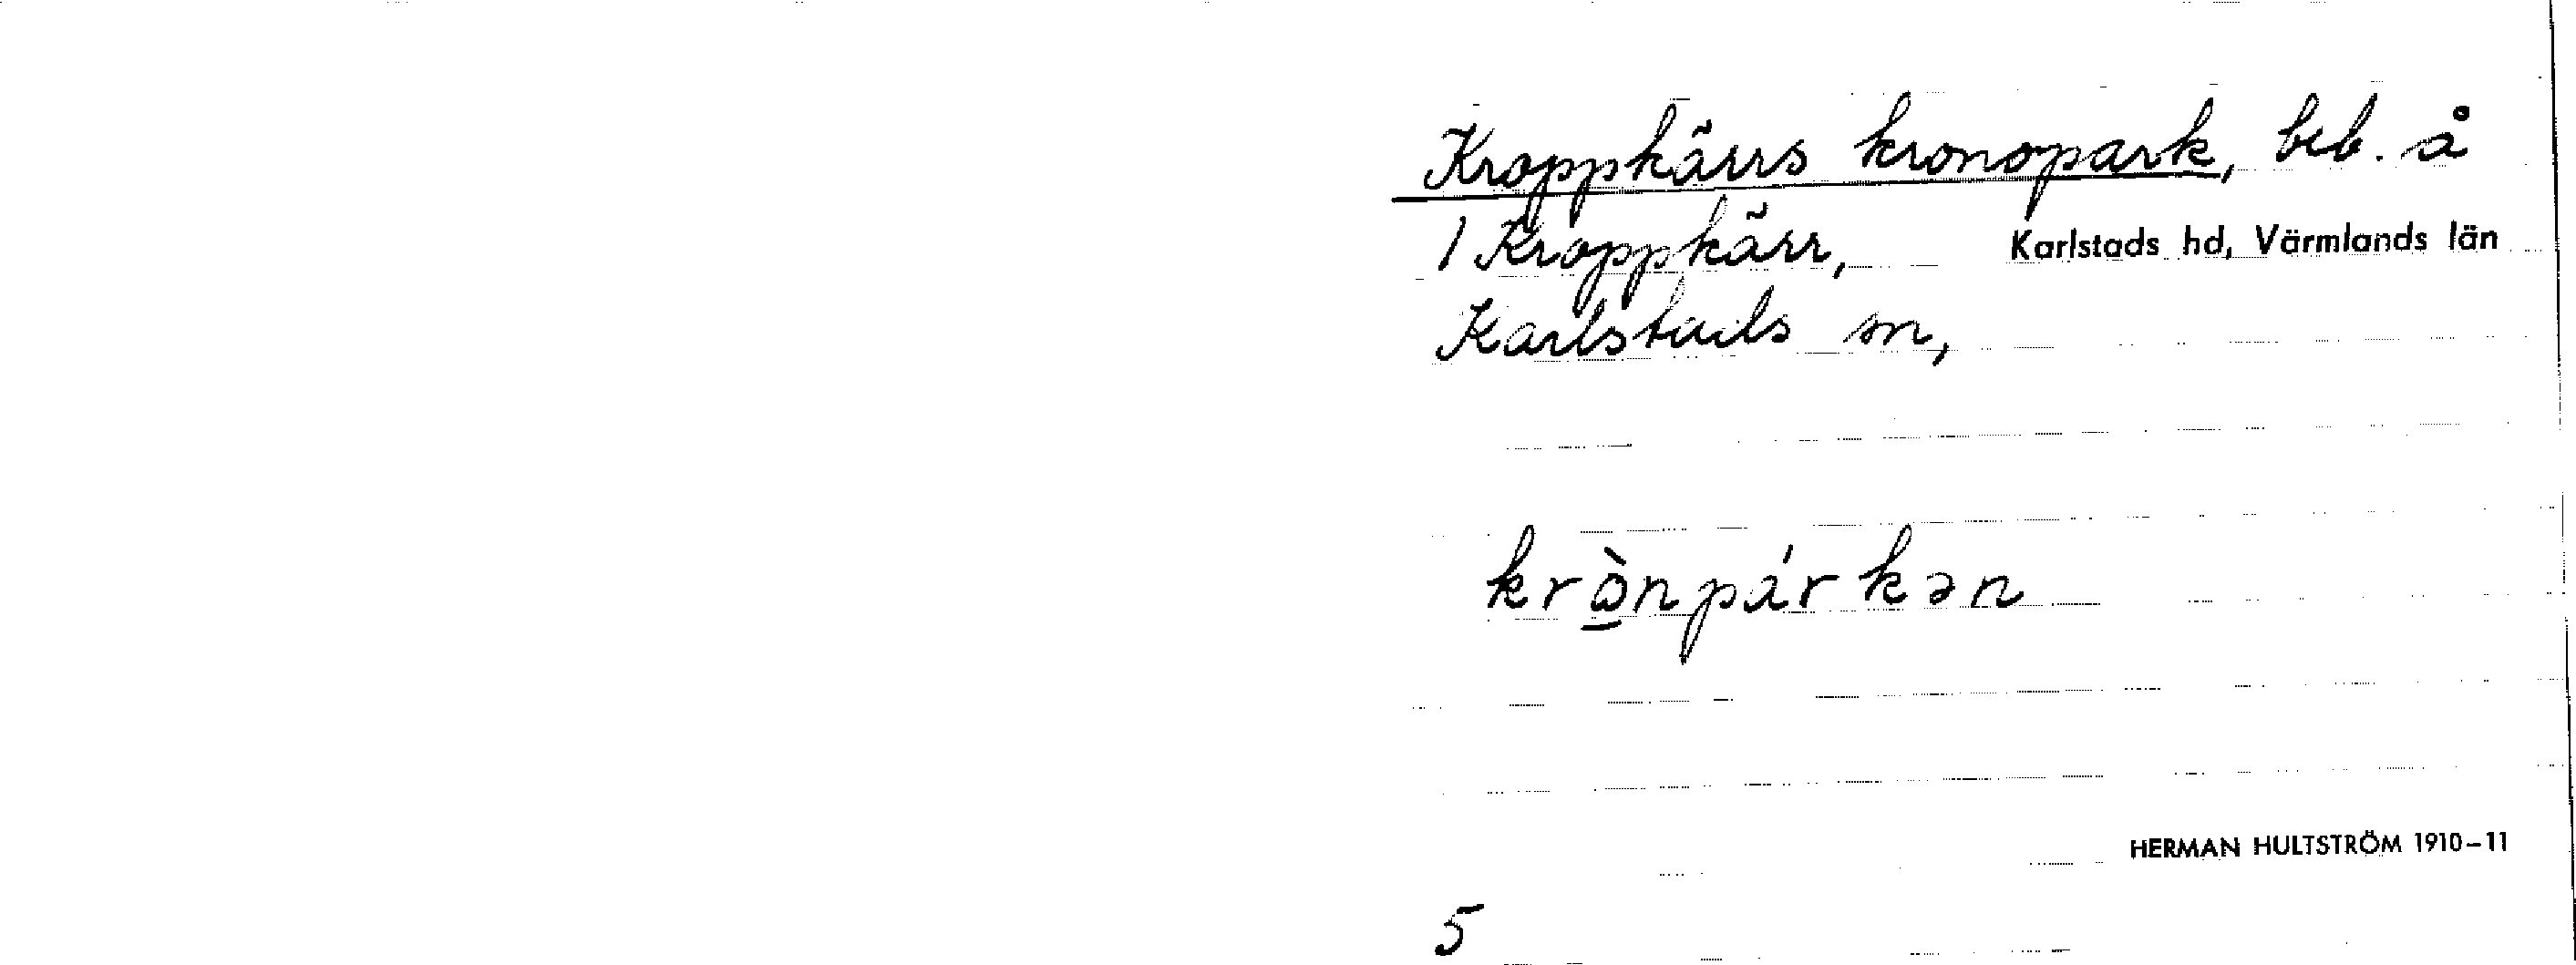 Kroppkärrs kronopark, beb. å
1 Kroppkärr, Karlstads hd, Värmlands län
Karlstads sn,
krò̲npárkən
HERMAN HULTSTRÖM 1910–11
5